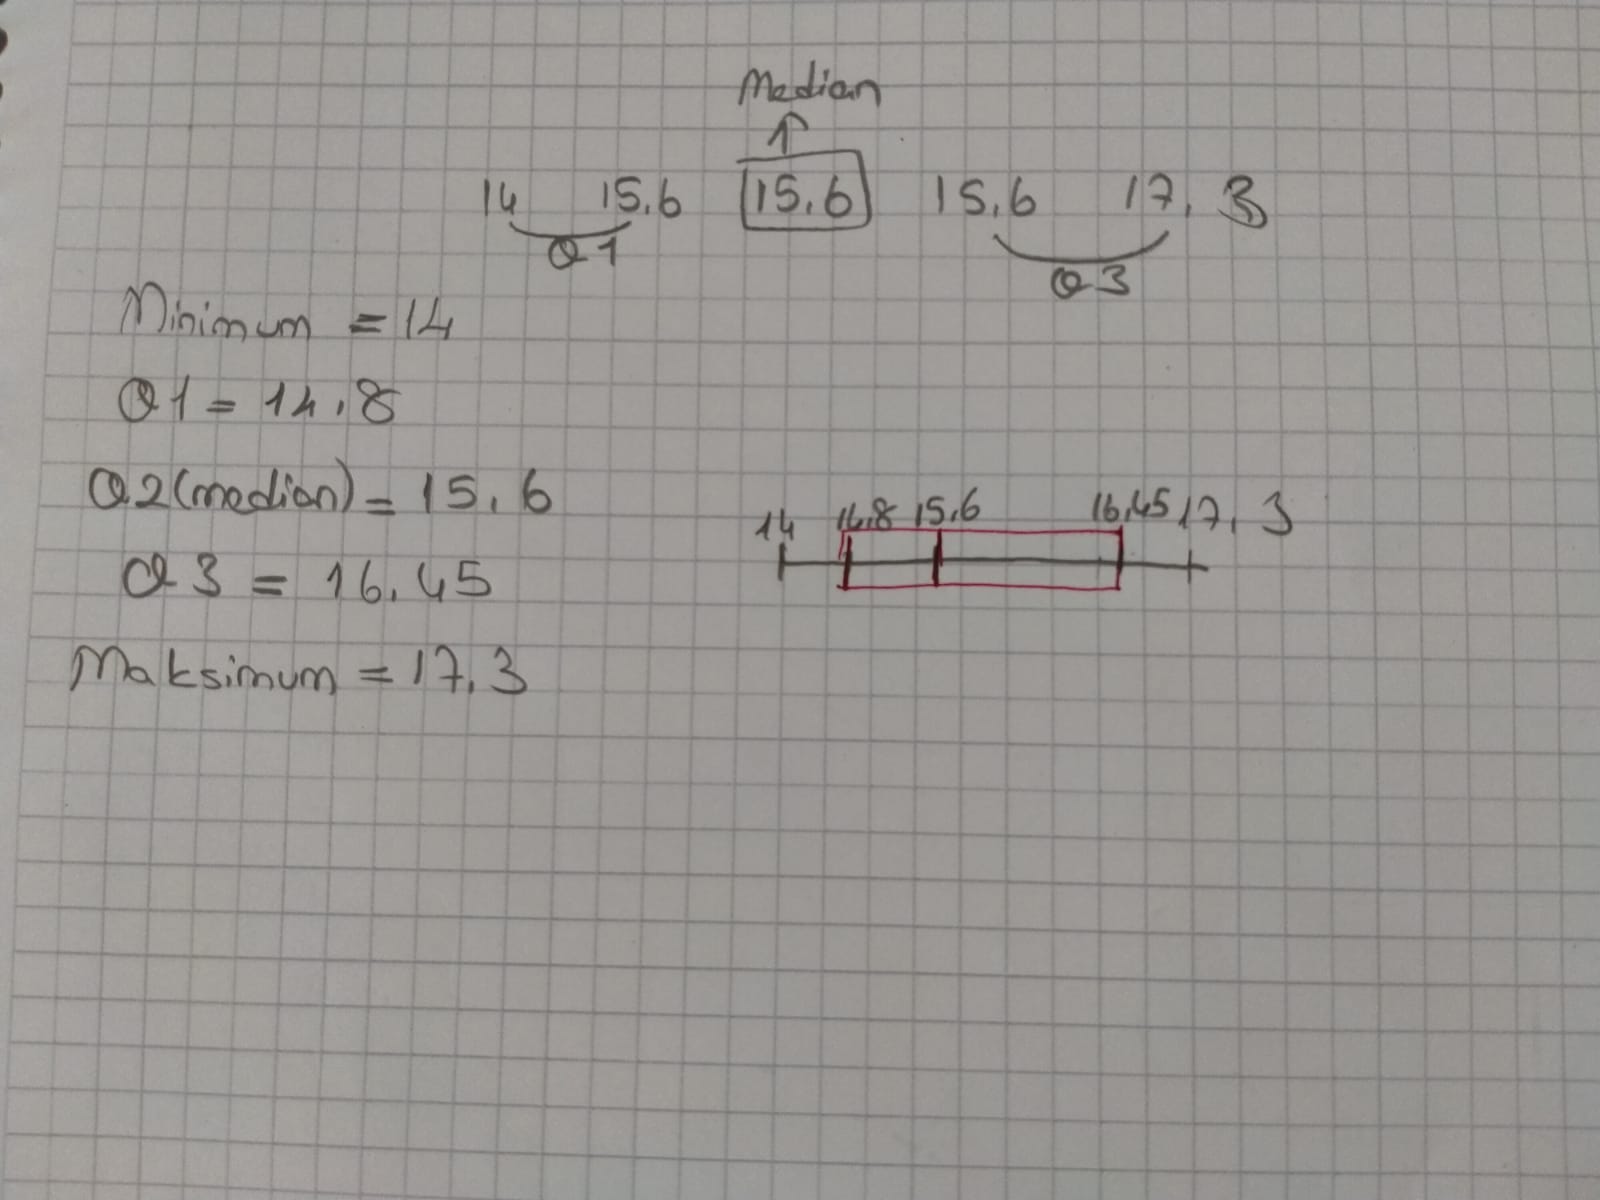 Median
14 15,6 15,6 15,6 17,3
Q1 Q3
Minimum = 14
Q1 = 14,8
Q2(median) = 15,6
Q3 = 16,45
Maksimum = 17,3
14 14,8 15,6 16,45 17,3